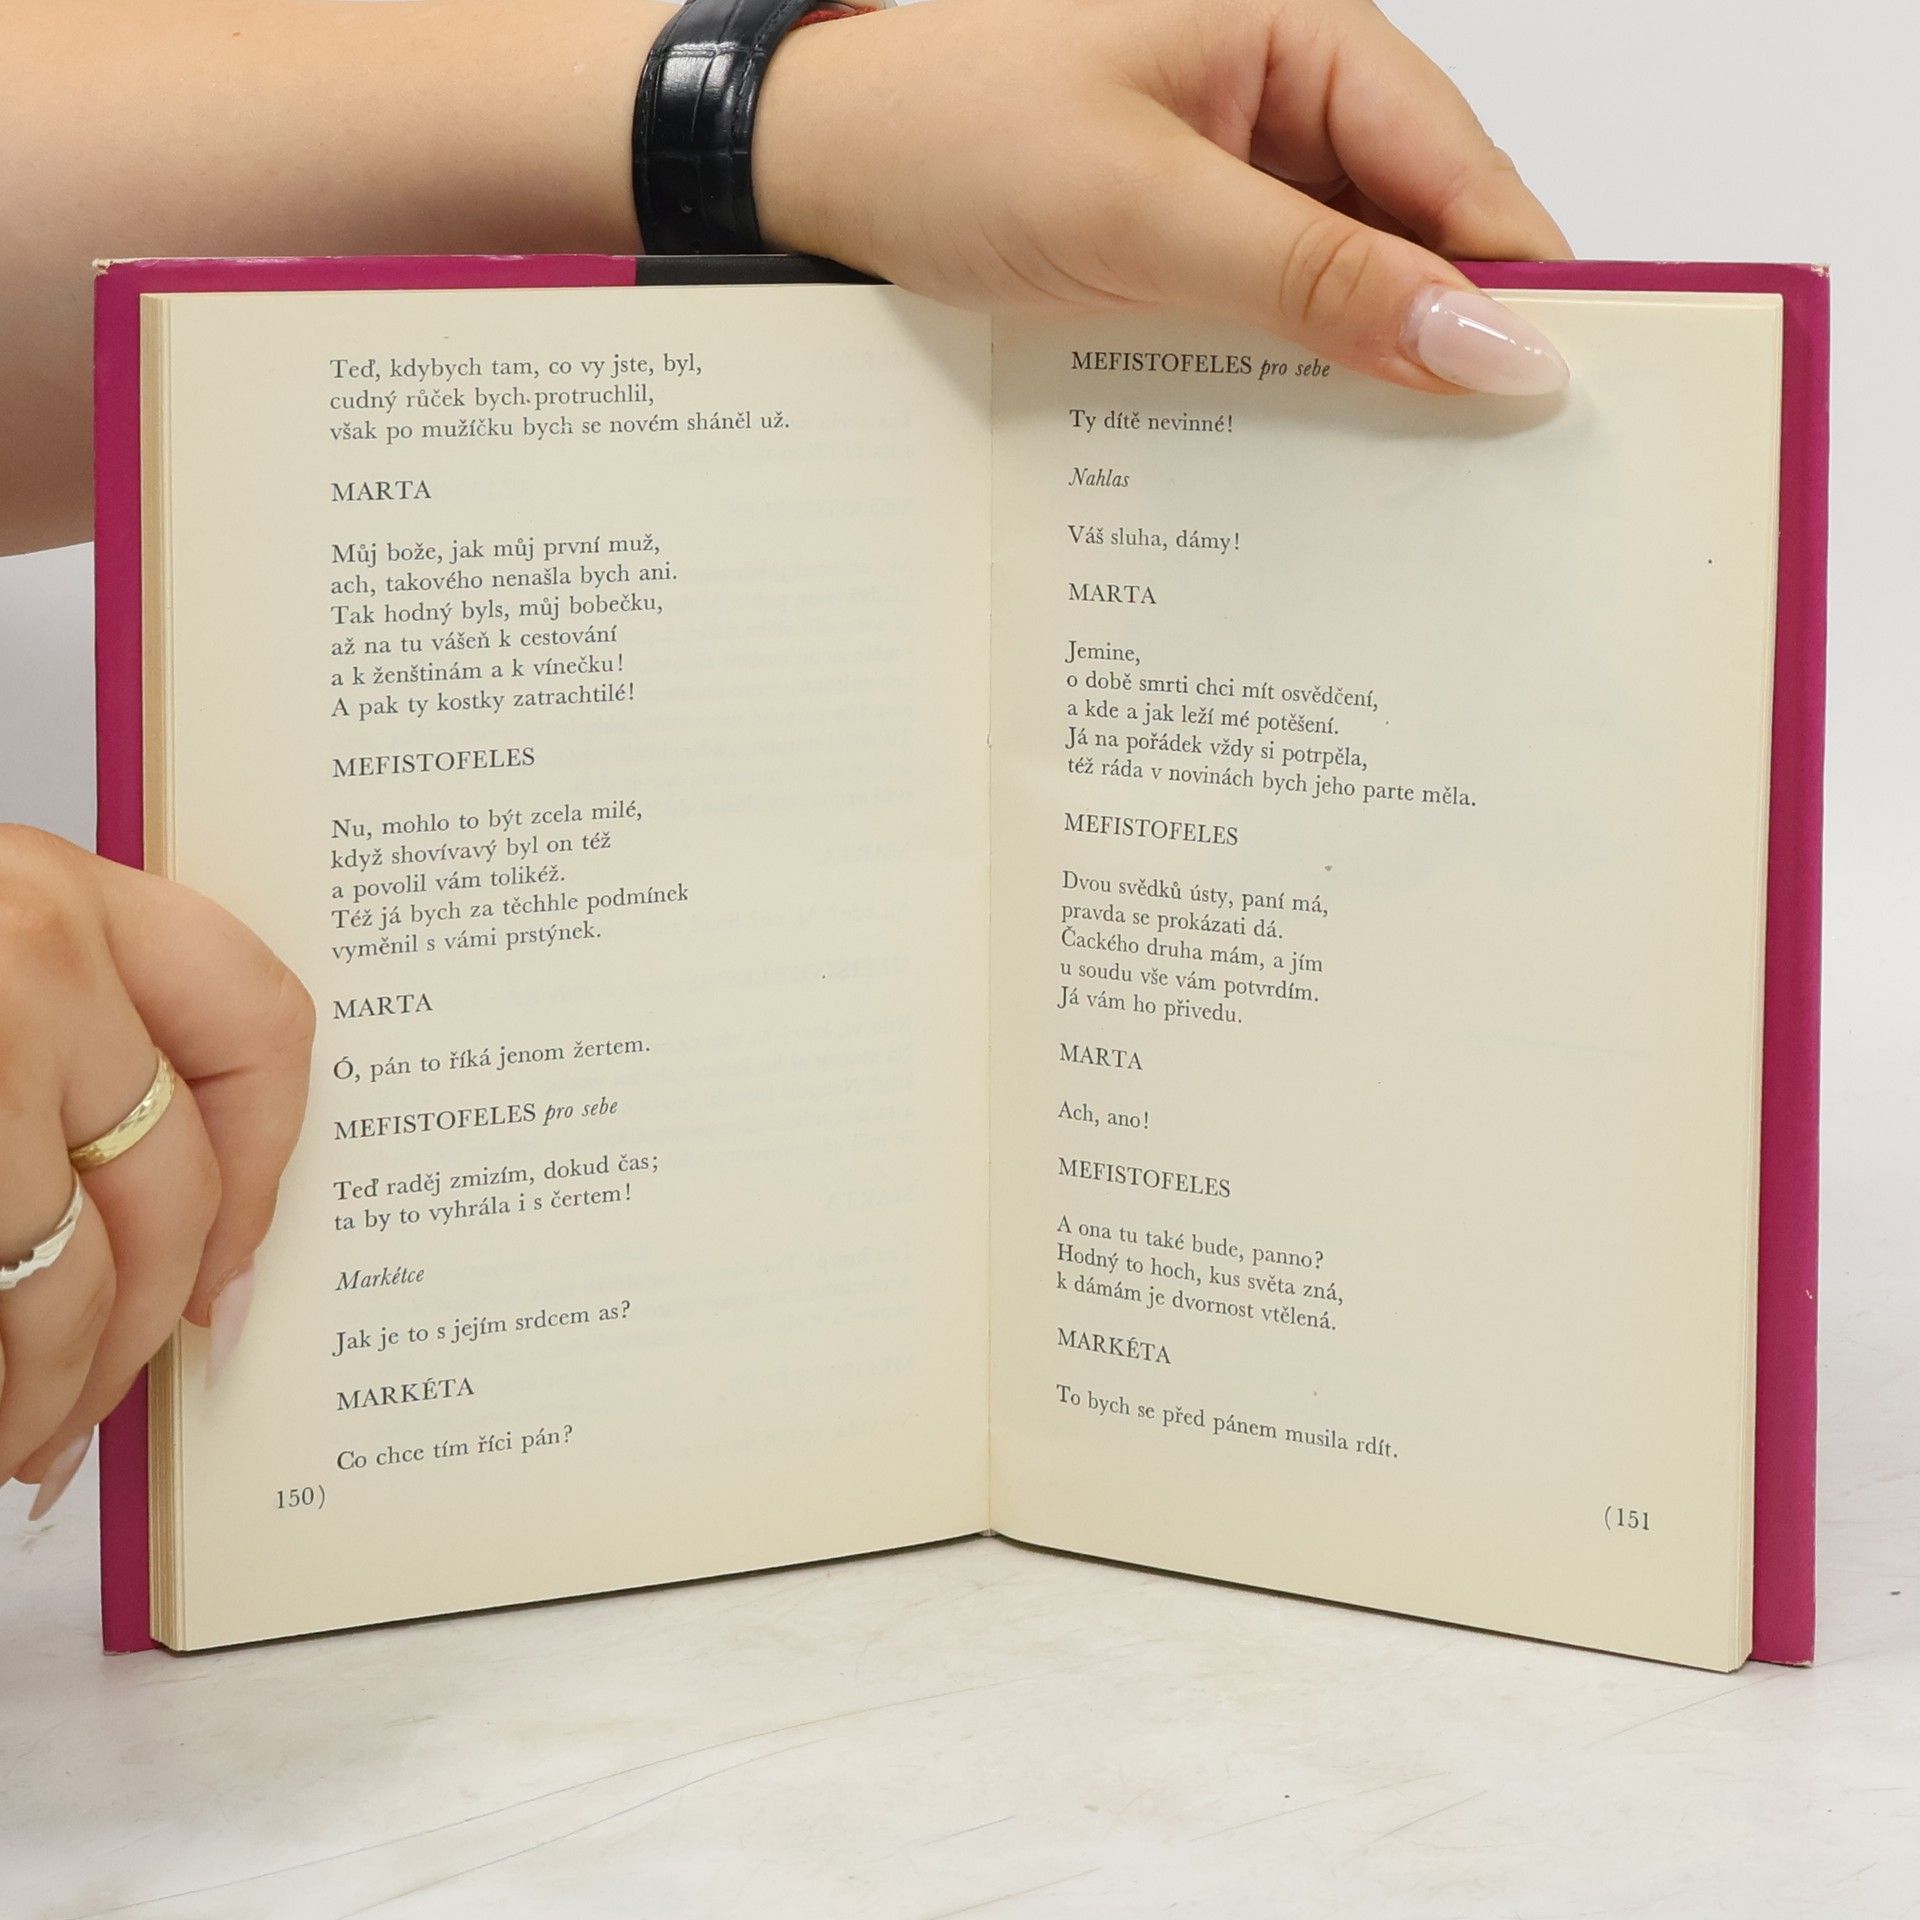 Teď, kdybych tam, co vy jste, byl,
cudný růček bych protruchlil,
však po mužíčku bych se novém sháněl už.
MARTA
Můj bože, jak můj první muž,
ach, takového nenašla bych ani.
Tak hodný byls, můj bobečku,
až na tu vášeň k cestování
a k ženštinám a k vínečku!
A pak ty kostky zatrachtilé!
MEFISTOFELES
Nu, mohlo to být zcela milé,
když shovívavý byl on též
a povolil vám tolikéž.
Též já bych za těchhle podmínek
vyměnil s vámi prstýnek.
MARTA
Ó, pán to říká jenom žertem.
MEFISTOFELES pro sebe
Teď raděj zmizím, dokud čas;
ta by to vyhrála i s čertem!
Markétce
Jak je to s jejím srdcem as?
MARKÉTA
Co chce tím říci pán?
150)
MEFISTOFELES pro sebe
Ty dítě nevinné!
Nahlas
Váš sluha, dámy!
MARTA
Jemine,
o době smrti chci mít osvědčení,
a kde a jak leží mé potěšení.
Já na pořádek vždy si potrpěla,
též ráda v novinách bych jeho parte měla.
MEFISTOFELES
Dvou svědků ústy, paní má,
pravda se prokázati dá.
Čackého druha mám, a jím
u soudu vše vám potvrdím.
Já vám ho přivedu.
MARTA
Ach, ano!
MEFISTOFELES
A ona tu také bude, panno?
Hodný to hoch, kus světa zná,
k dámám je dvornost vtělená.
MARKÉTA
To bych se před pánem musila rdít.
(151